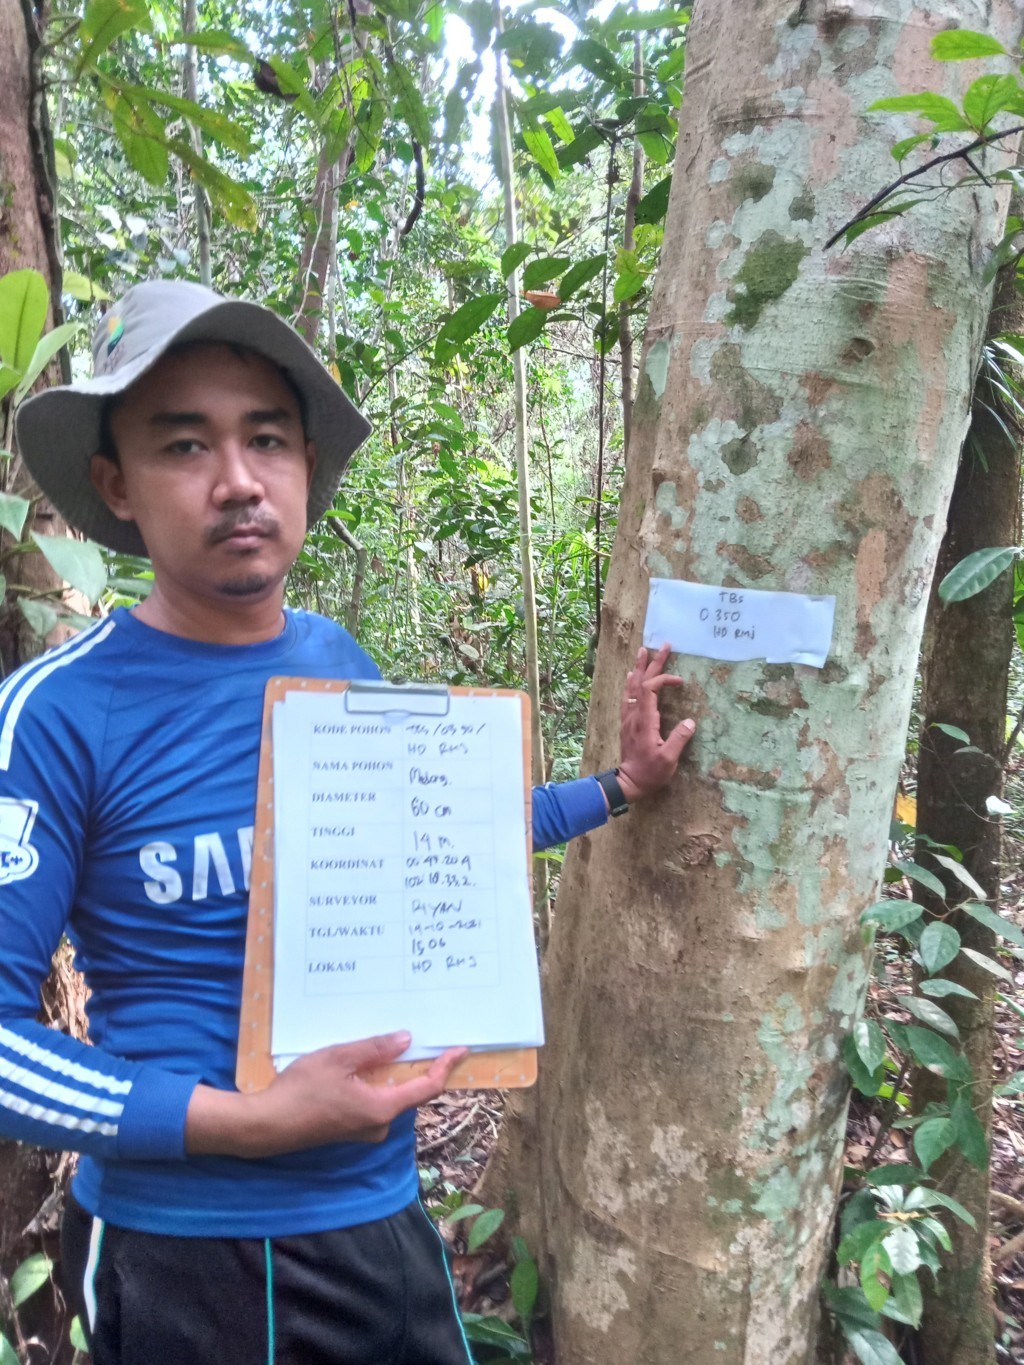 TBS
0350
HD RMJ
SA
KODE POHON TBS/0350/
HD RMJ
NAMA POHON Medang.
DIAMETER 60 cm
TINGGI 14 m.
KOORDINAT 00.49.20.4
102.10.33.2.
SURVEYOR RIYAN
TGL/WAKTU 14-10-2021
15.06
LOKASI HD RMJ